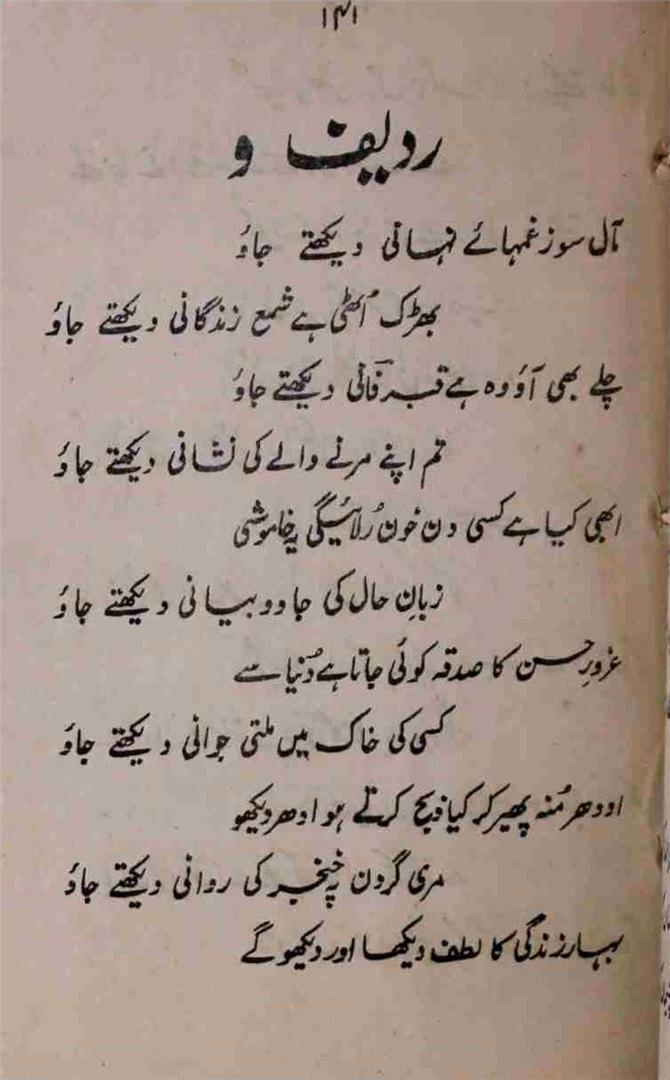 ۱۴۱
ردیف و
مآل سوز غمہائے نہانی دیکھتے جاؤ
بھڑک اُٹھی ہے شمع زندگانی دیکھتے جاؤ
چلے بھی آؤ وہ ہے قبر فانؔی دیکھتے جاؤ
تم اپنے مرنے والے کی نشانی دیکھتے جاؤ
ابھی کیا ہے کسی دن خون رُلائیگی یہ خاموشی
زبانِ حال کی جادو بیانی دیکھتے جاؤ
غرورِ حسن کا صدقہ کوئی جاتا ہے دُنیا سے
کسی کی خاک میں ملتی جوانی دیکھتے جاؤ
اودھر مُنہ پھیر کر کیا ذبح کرتے ہو ادھر دیکھو
مری گردن پہ خنجر کی روانی دیکھتے جاؤ
بہار زندگی کا لطف دیکھا اور دیکھو گے